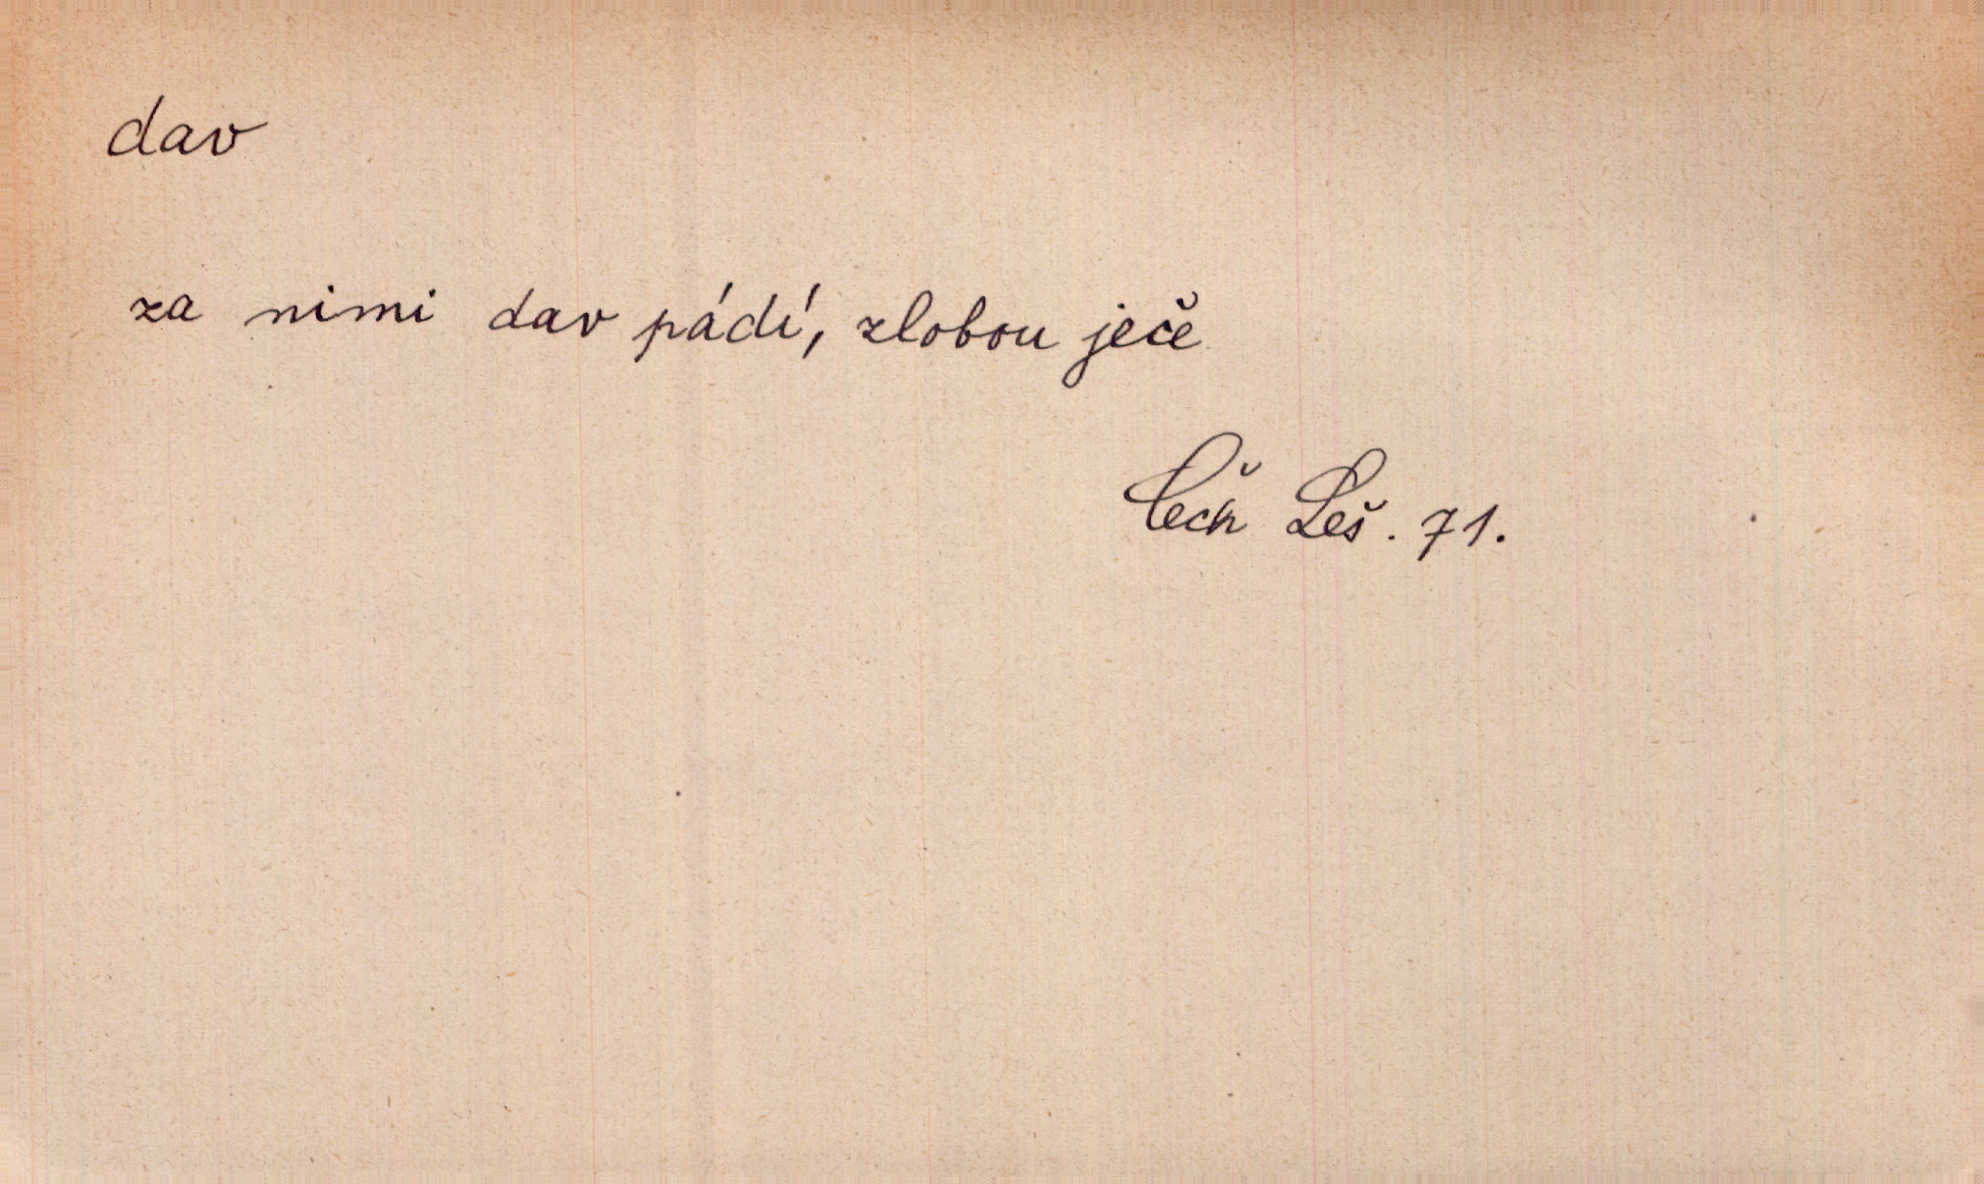 dav
za nimi dav pádí, zlobou ječe
Čech Leš. 71.